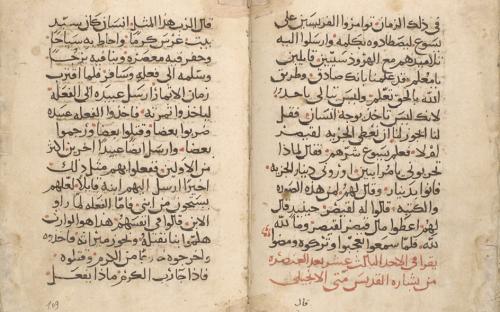 في ذلك الزمان توامروا الفريسين على
يسوع ليصطادوه بكلمه وارسلوا اليه
تلاميذهم مع الهرودسيين قايلين
يامعلم قد علمنا انك صادق وطريق
الله بالحق تعلم وليس تبالي باحد
لانك ليس تاخذ بوجه انسان فقل
لنا ايجوز لنا ان نعطي الجزيه لقيصر
ام لا فعلم يسوع شرهم فقال لماذا
تجربوني يامرايين اروني دينار الجزيه
فاتوا بدينار وقال لهم لمن هذه الصوره
والكتبه قالوا له لقيصر حينيد قال
لهم اعطوا مال قيصر لقيصر وما لله
لله فلما سمعوا تعجبوا وتركوه ومضوا
يقرا في الاحد الثالث عشر بعد العنصره
من بشاره القديس متى الانجيلي
قال
قال الرب هذا المثل انسان كان سيد
بيت غرس كرما واحاط به سياجا
وحفر فيه معصره وبنا فيه برجا
وسلمه الى فعله وسافر فلما اقترب
زمان الاثمار ارسل عبيده الى الفعله
لياخذوا ثمرته فاخذوا الفعله عبيده
ضربوا بعضا وقتلوا بعضا ورجموا
بعضا وارسل ايضا عبيدا اخرين اكثر
من الاولين ففعلوا بهم مثل ذلك
اخيرا ارسل اليهم ابنه قايلا لعلهم
يستحيون من ابني فاما الفعله لما راو
الابن قالوا في انفسهم هذا هو الوارث
هلموا بنا نقتله ونحوز ميراثه فاخذوه
واخرجوه خارجا من الكرم وقتلوه
فاذا جا رب الكرم ماذا يفعل
109